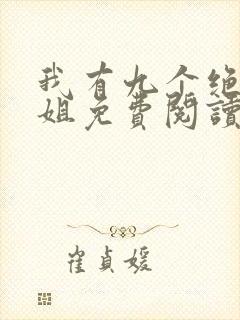 我有九个绝
姐免费閱讀
崔貞媛